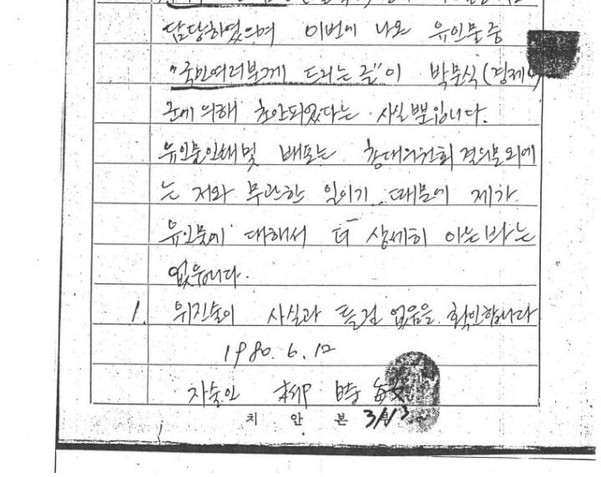 담당하였으며 이번에 나온 유인물중
"국민여러분께 드리는 글"이 박문식(경제
군에 의해 초안되었다는 사실 뿐입니다.
유인물인쇄및 배포는 총대의원회 결의문외에
는 저와 무관한 일이기 때문에 제가
유인물에 대해서 더 상세히 아는 바는
없읍니다.
1. 위진술이 사실과 틀림 없음을 확인합니다
1980. 6. 12
자술인
치 안 본
313